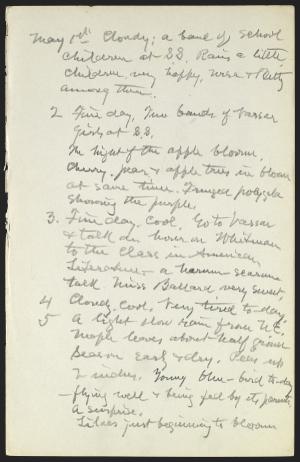 May 1st. Cloudy; a band of school
children at S.S. Rains a little,
children very happy, Ursa & Betty
among them.
2 Fine day, Two bands of Vassar
Girls at S.S.
The height of the apple bloom,
cherry, pear & apple trees in bloom
at same time. Fringed polygala
showing the purple.
3. Fine day. Cool. Go to Vassar
& talk an hour on Whitman
to the class in American
Literature - a harum-scarum
talk. Miss Ballard very sweet.
4 Cloudy, cool. Very tired to-day.
5 A light slow rain from N.E.
Maple leaves about half grown
Season early & dry. Peas up
2 inches. Young blue-bird to-day
- flying well & being fed by its parents
A surprise.
Lilacs just beginning to bloom